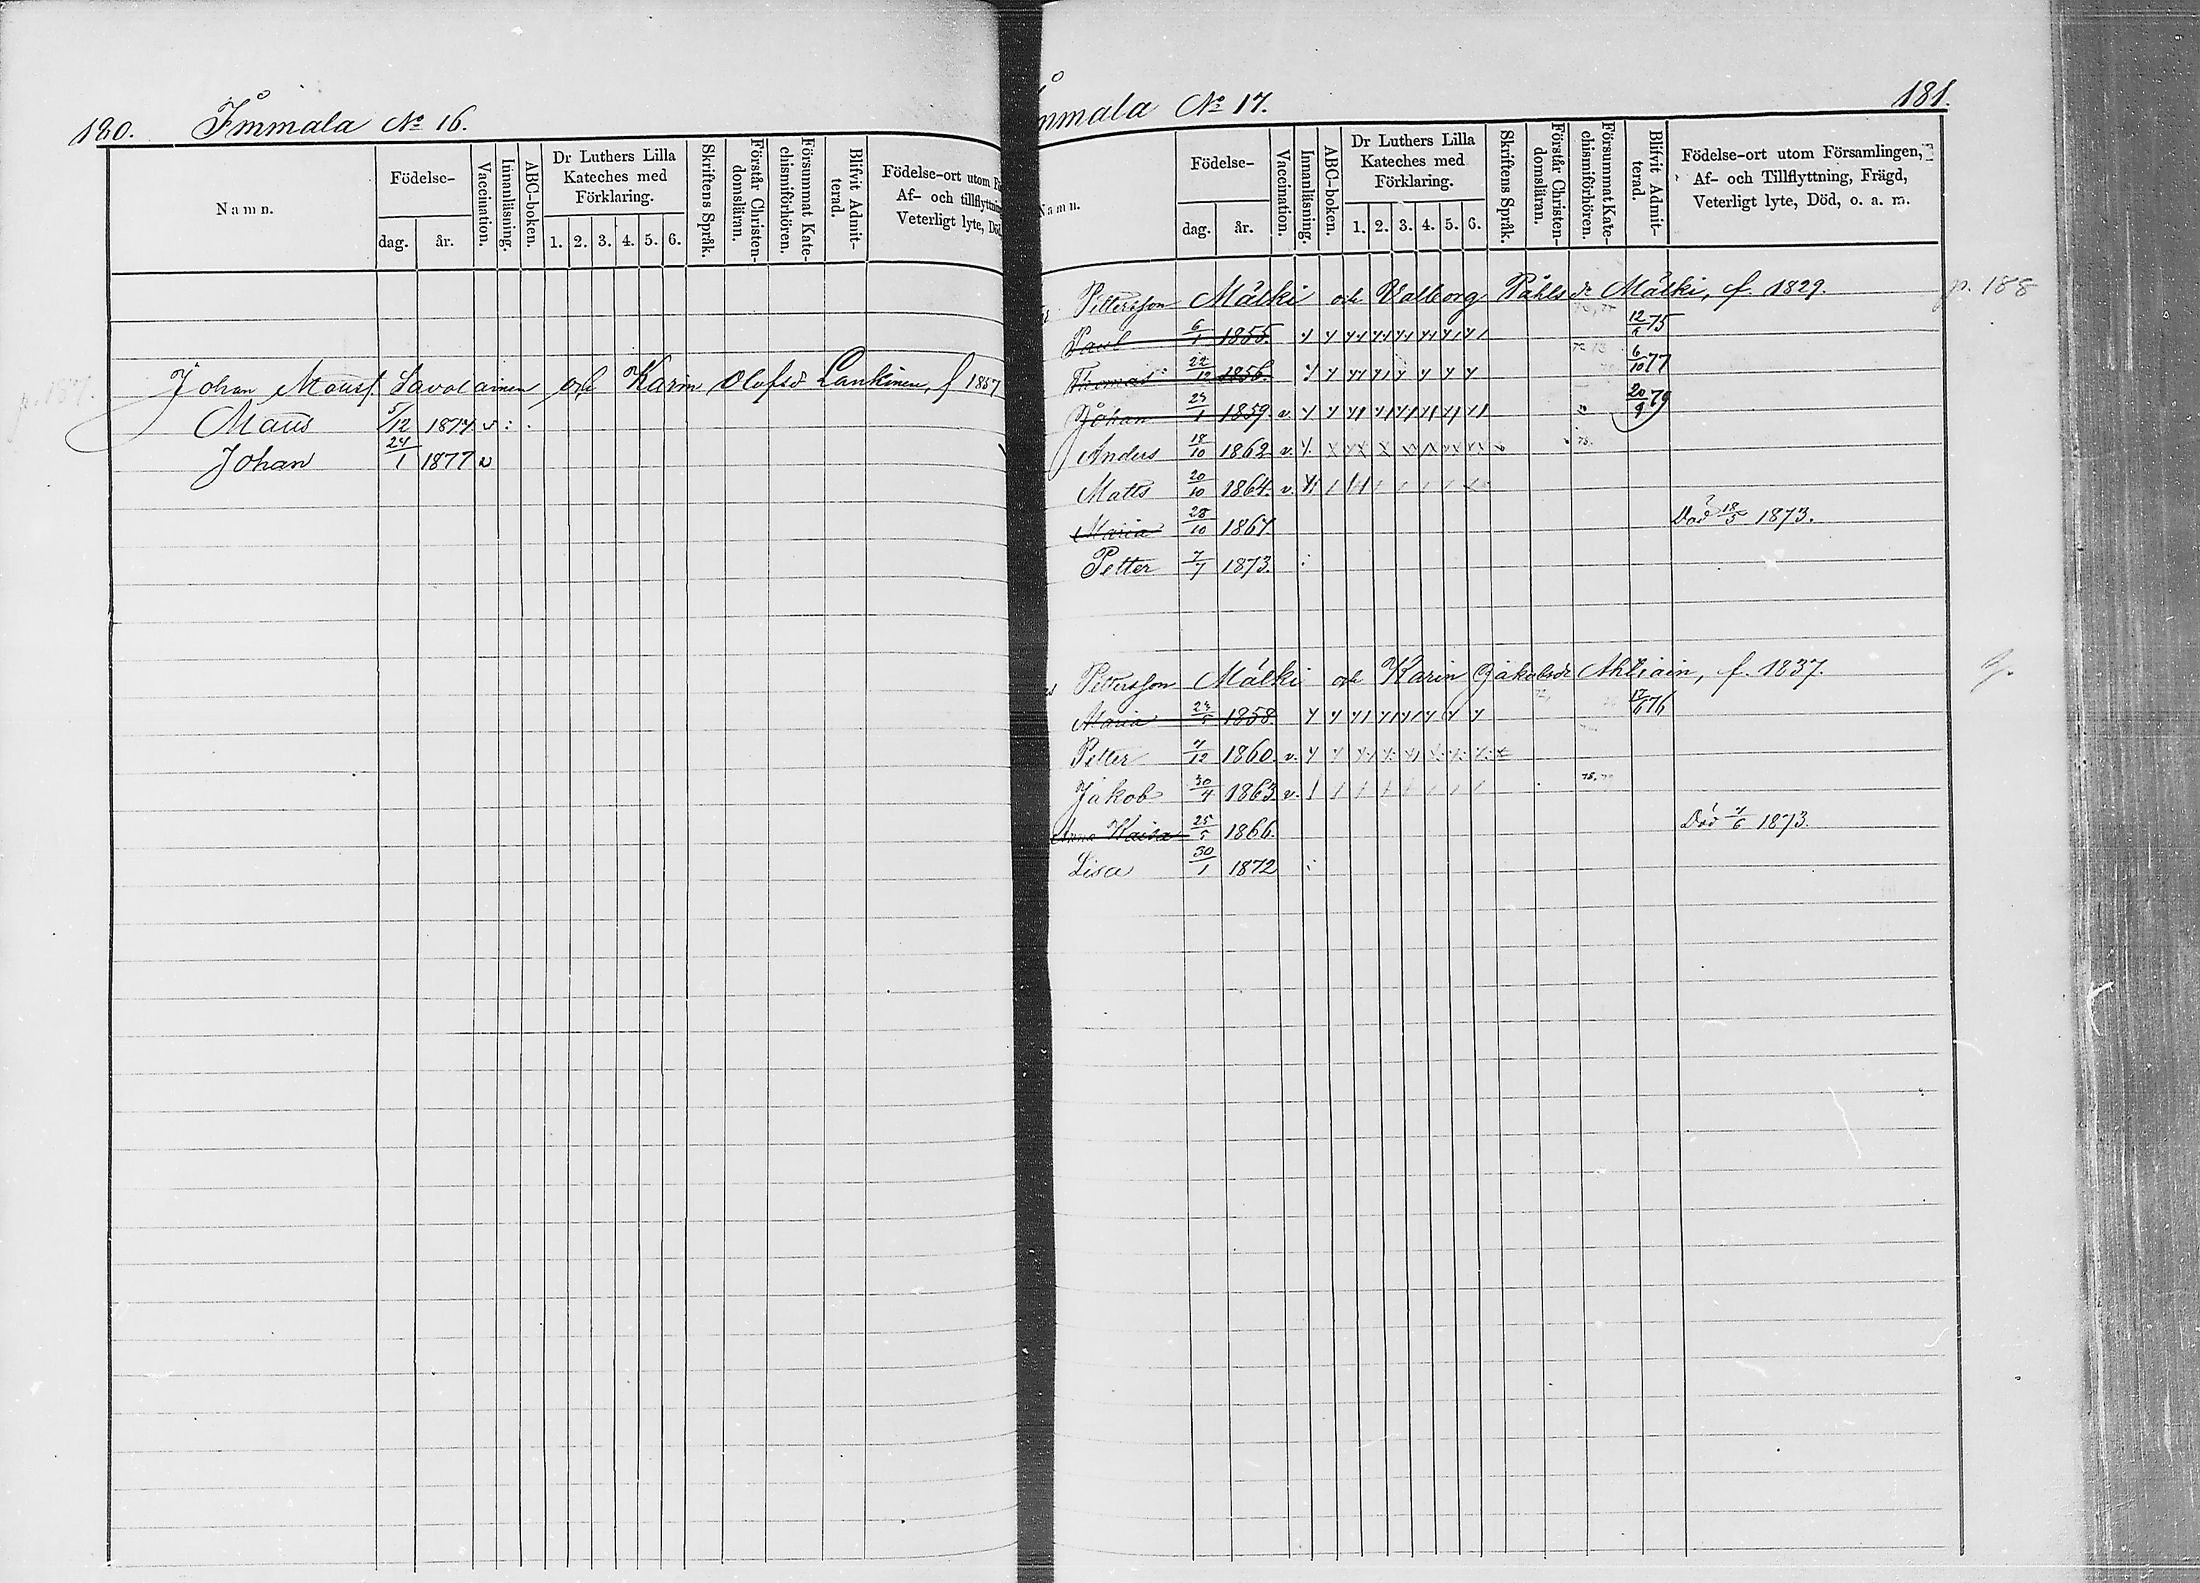 180. Immala No 16.
Namn. Födelse- dag. år. Vaccination. Innanläsning. ABC-boken. Dr Luthers Lilla Kateches med Förklaring. 1. 2. 3. 4. 5. 6. Skriftens Språk. Förstår Christen-domsläran. Försummat Kate-chismiförhören. Blifvit Admit-terad. Födelse-ort utom
Af- och tillflyttning
Veterligt lyte, Död
Johan Mausf. Savolainen och Karin Olofsd Lankinen, f 1857
Maus 5/12 1874 v :
Johan 24/1 1877 v
mmala No 17. 181.
Namn. Födelse- dag. år. Vaccination. Innanläsning. ABC-boken. Dr Luthers Lilla Kateches med Förklaring. 1. 2. 3. 4. 5. 6. Skriftens Språk. Förstår Christen-domsläran. Försummat Kate-chismiförhören. Blifvit Admit-terad. Födelse-ort utom Församlingen,
Af- och Tillflyttning, Frägd,
Veterligt lyte, Död, o. a. m.
Pettersson Mälki och Valborg Påhlsdr Mälki, f. 1829. p. 188
Paul 6/1 1855. 12/6 75
Thomas 22/12 1856. 6/10 77
Johan 23/1 1859. v. 20/9 79
Anders 18/10 1862 v. 78.
Matts 20/10 1864. v.
Maria 28/10 1867. Död 18/5 1873.
Petter 7/7 1873. :
Pettersson Mälki och Karin Jakobsdr Ahtiain, f. 1837.
Maria 23/5 1858. 17/6 76
Petter 7/12 1860. v.
Jakob 30/4 1863 v. 78.
Anna Kaisa 25/5 1866. Död 7/6 1873.
Lisa 30/1 1872 :